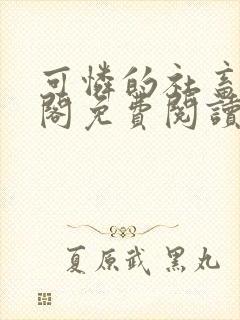 可憐的社畜
閣免費閱讀
夏原武 黑丸